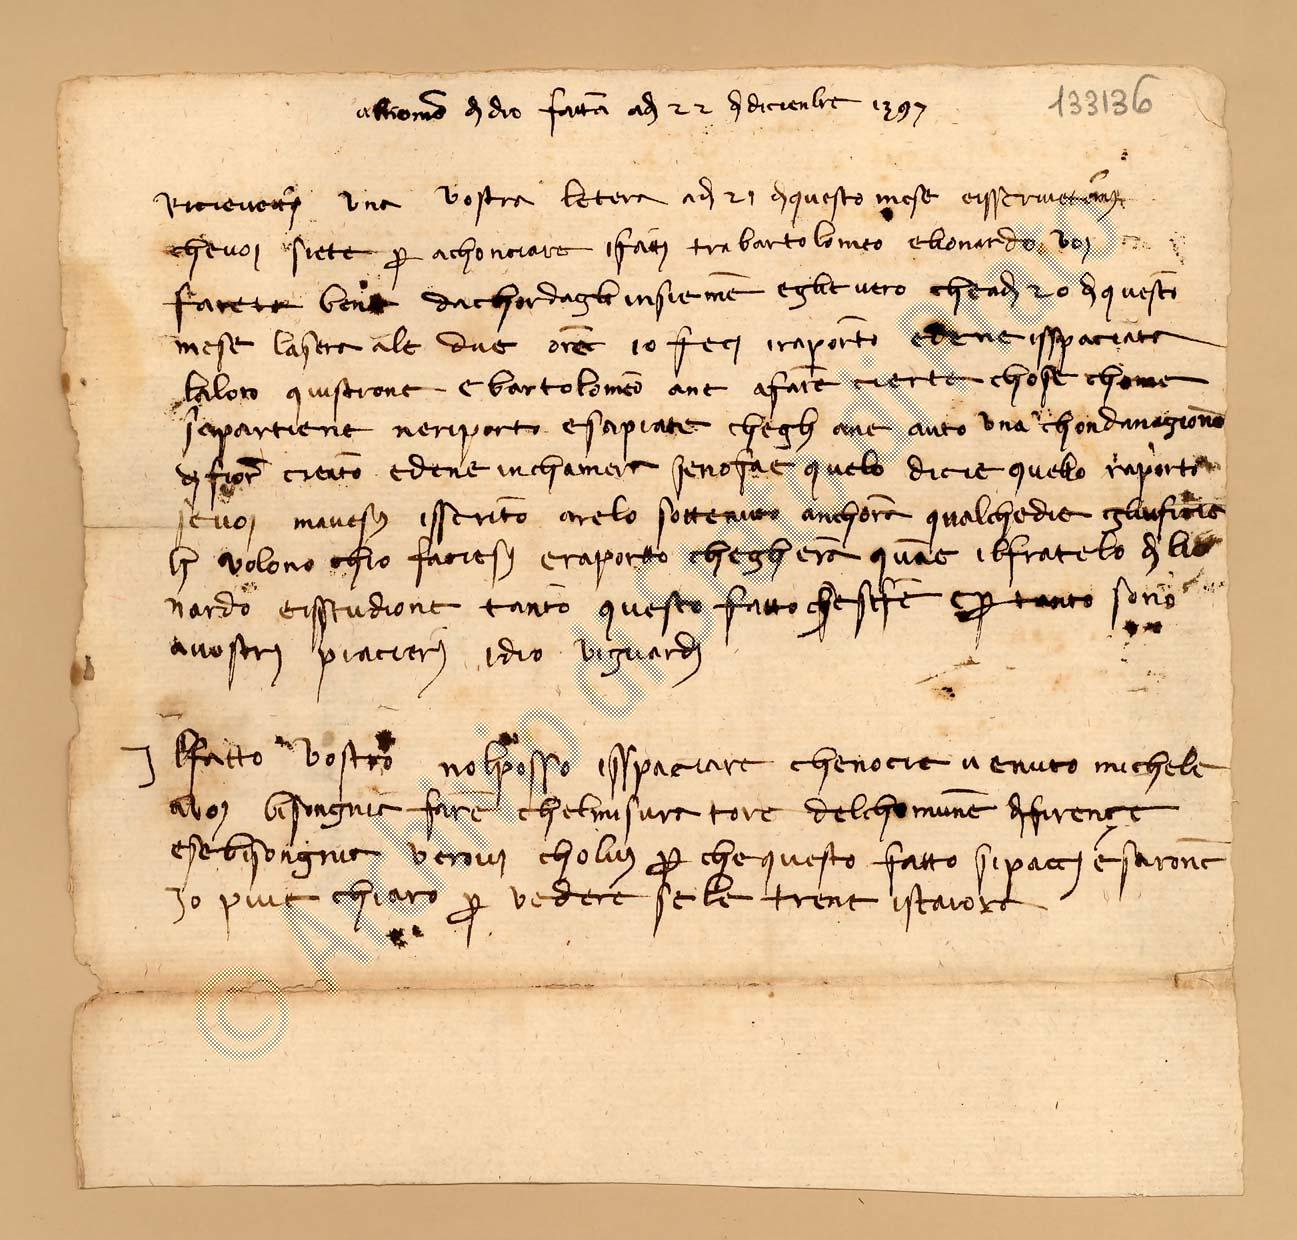 al nome di dio fatta adj 22 di dicienbre 1397
133136
Ricievetti una vostra letera adj 21 di questo mese
chevoj siete per achonciare ifatti trabartolomeo elionardo voj
farete bene dachordagli insieme eglie vero cheadj 20 di questo
mese lasera ale due ore io fecj iraporto edene isspaciata
laloro quistione e bartolomeo ane afare cierte chose chome
sapartiene neriporto esapiate chegli ane auto una chondanagione
di fior ciento edene inchamera senofae quelo dicie quelo raporto
sevoj mavesj isscritto arelo sottenuto anchora qualchedie
volono chio faciesj eraporto chegliera quane ilfratelo di lio
nardo eisstudione tanto questo fatto chesefe per tanto sono
avostrj piacierj idio viguardj
I lfatto vostro nolposso isspaciare chenocie venuto michele
avoj bisongnia fare chelmisura tore delchomune difirençe
esebisongnia verovi cholui per che questo fatto sipaccj esarone
io piue chiaro per vedere sele trene istaiora
© Archivio di Stato di Prato